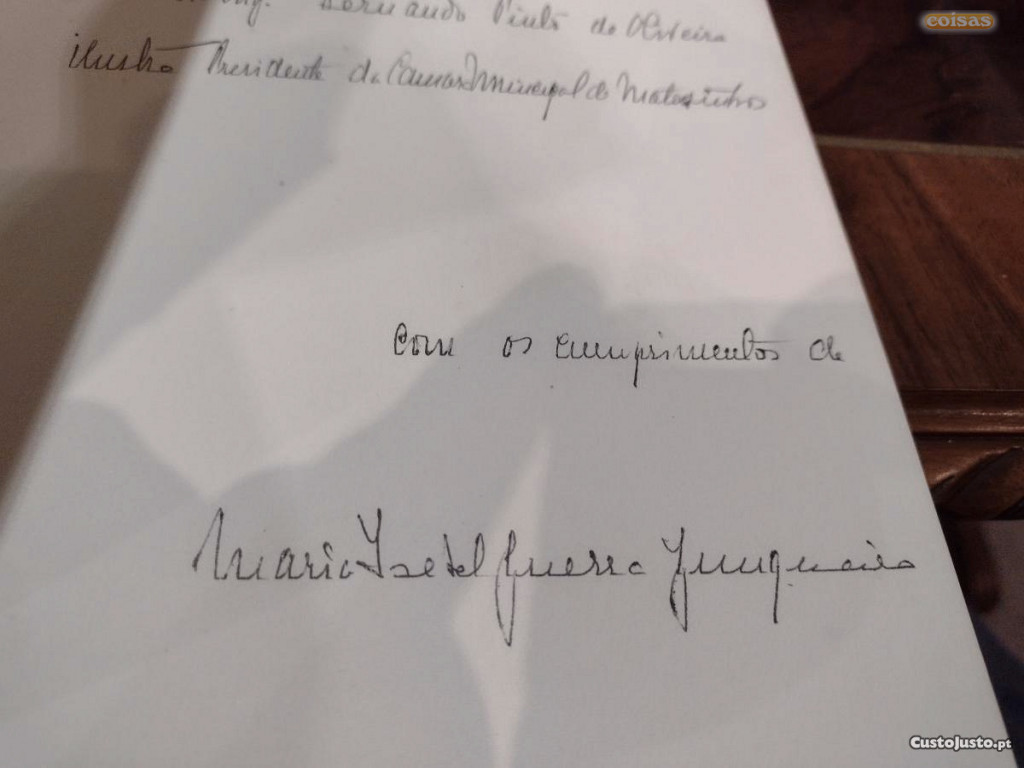 coisas
Eng. Fernando Pinto de Oliveira
ilustre Presidente da Camara Municipal de Matosinhos
Com os cumprimentos de
Maria Isabel Guerra Junqueiro
CustoJusto.pt